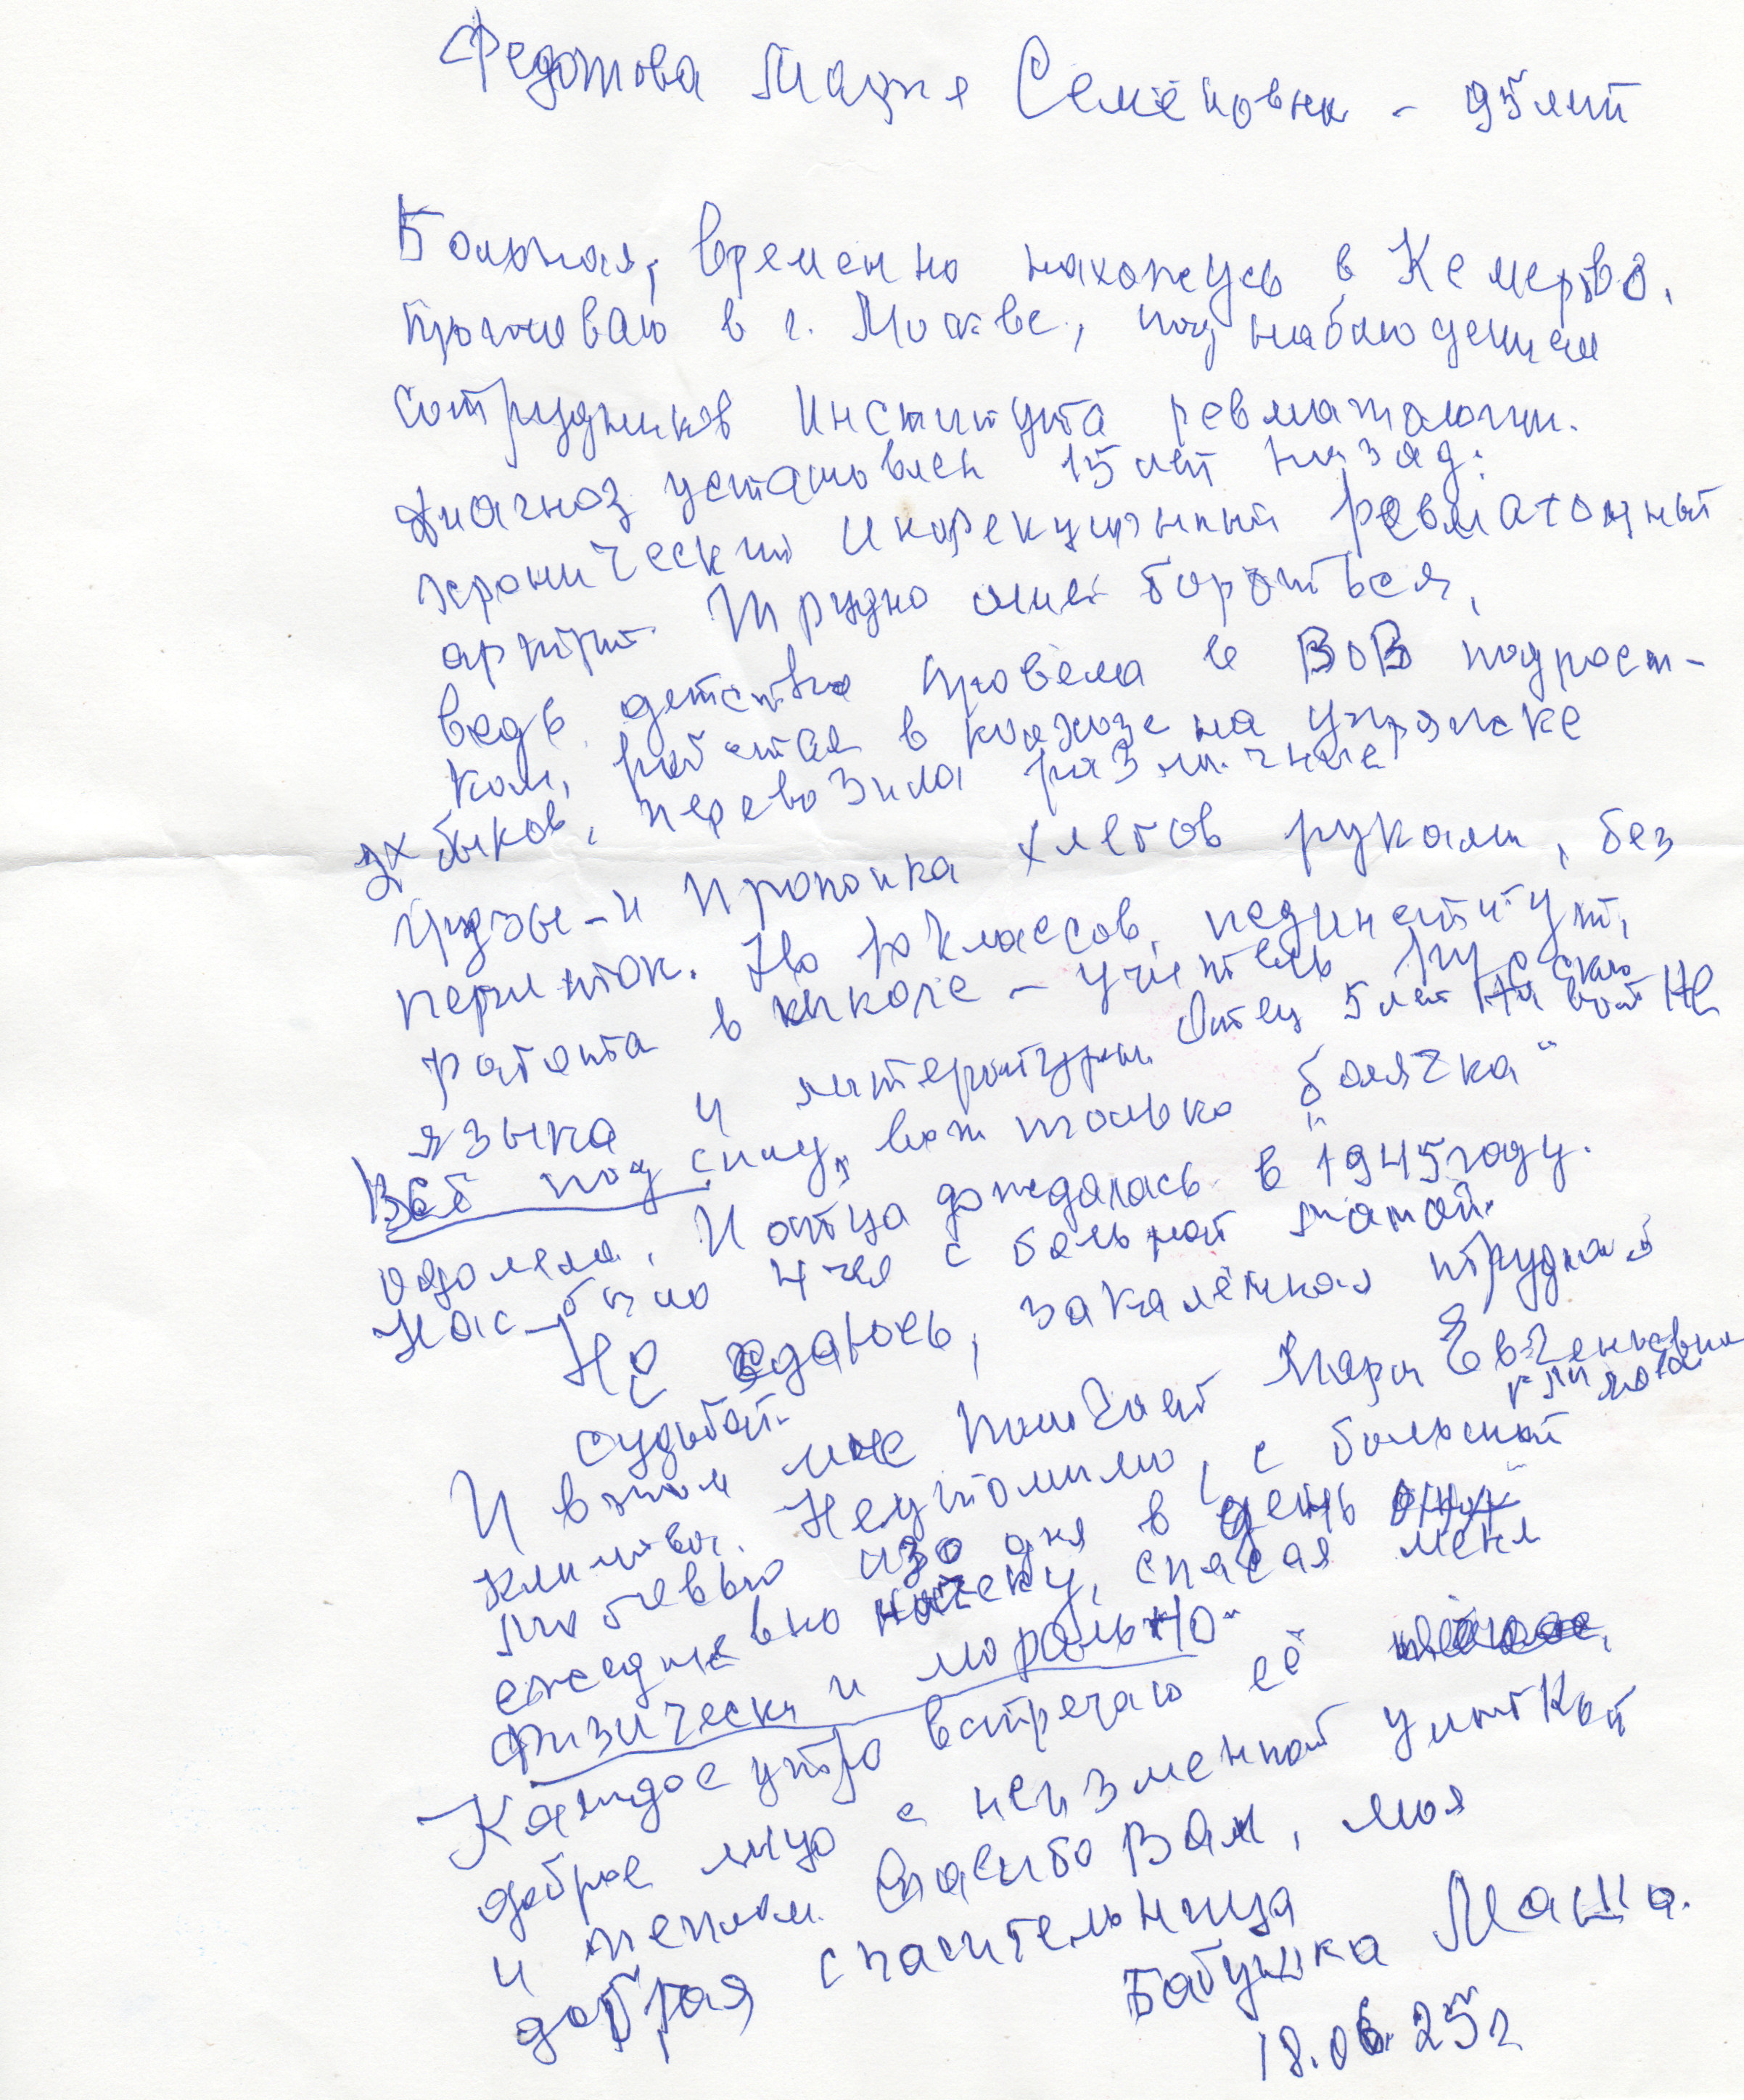 Федотова Мария Семёновна - 95 лет
Больная, временно нахожусь в Кемерово.
Проживаю в г. Москве, под наблюдением
сотрудников института ревматологии.
Диагноз установлен 15 лет назад:
хронический инфекционный ревматоидный
артрит. Трудно мне бороться,
ведь детство провела в ВОВ подрост-
ком, работая в колхозе на упряжке
2х быков, перевозила различные
грузы - и прополка хлебов руками, без
перчаток. Но 10 классов, пединститут,
работа в школе - учитель русского
языка и литературы. Отец 5 лет на войне
Всё под силу, вот только "болячка"
одолела. И отца дождалась в 1945 году.
Нас было 4-ая с больной мамой.
Не сдаюсь, закалённая трудной
судьбой.
И в этом мне помогает Мария Евгеньевна
клиника. Неутомимо, с большой
любовью изо дня в день
ежедневно спасая меня
физически и морально"
Каждое утро встречаю её
доброе лицо с неизменной улыбкой
и теплом. Спасибо Вам, моя
добрая спасительница
Бабушка Маша.
18.06.25г